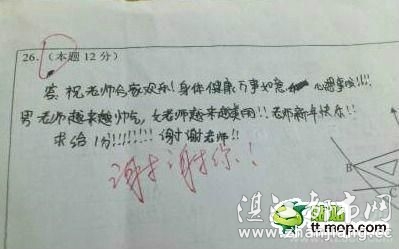 26.(本题12分)
答:祝老师合家欢乐!身体健康万事如意心想事成!!!!
男老师越来越帅气,女老师越来越美丽!!老师新年快乐!!
求给1分!!!!!!!!谢谢老师!!
谢谢你!!
B
C
湛江都市网
www.zhanjiang.cc
tt.mop.com